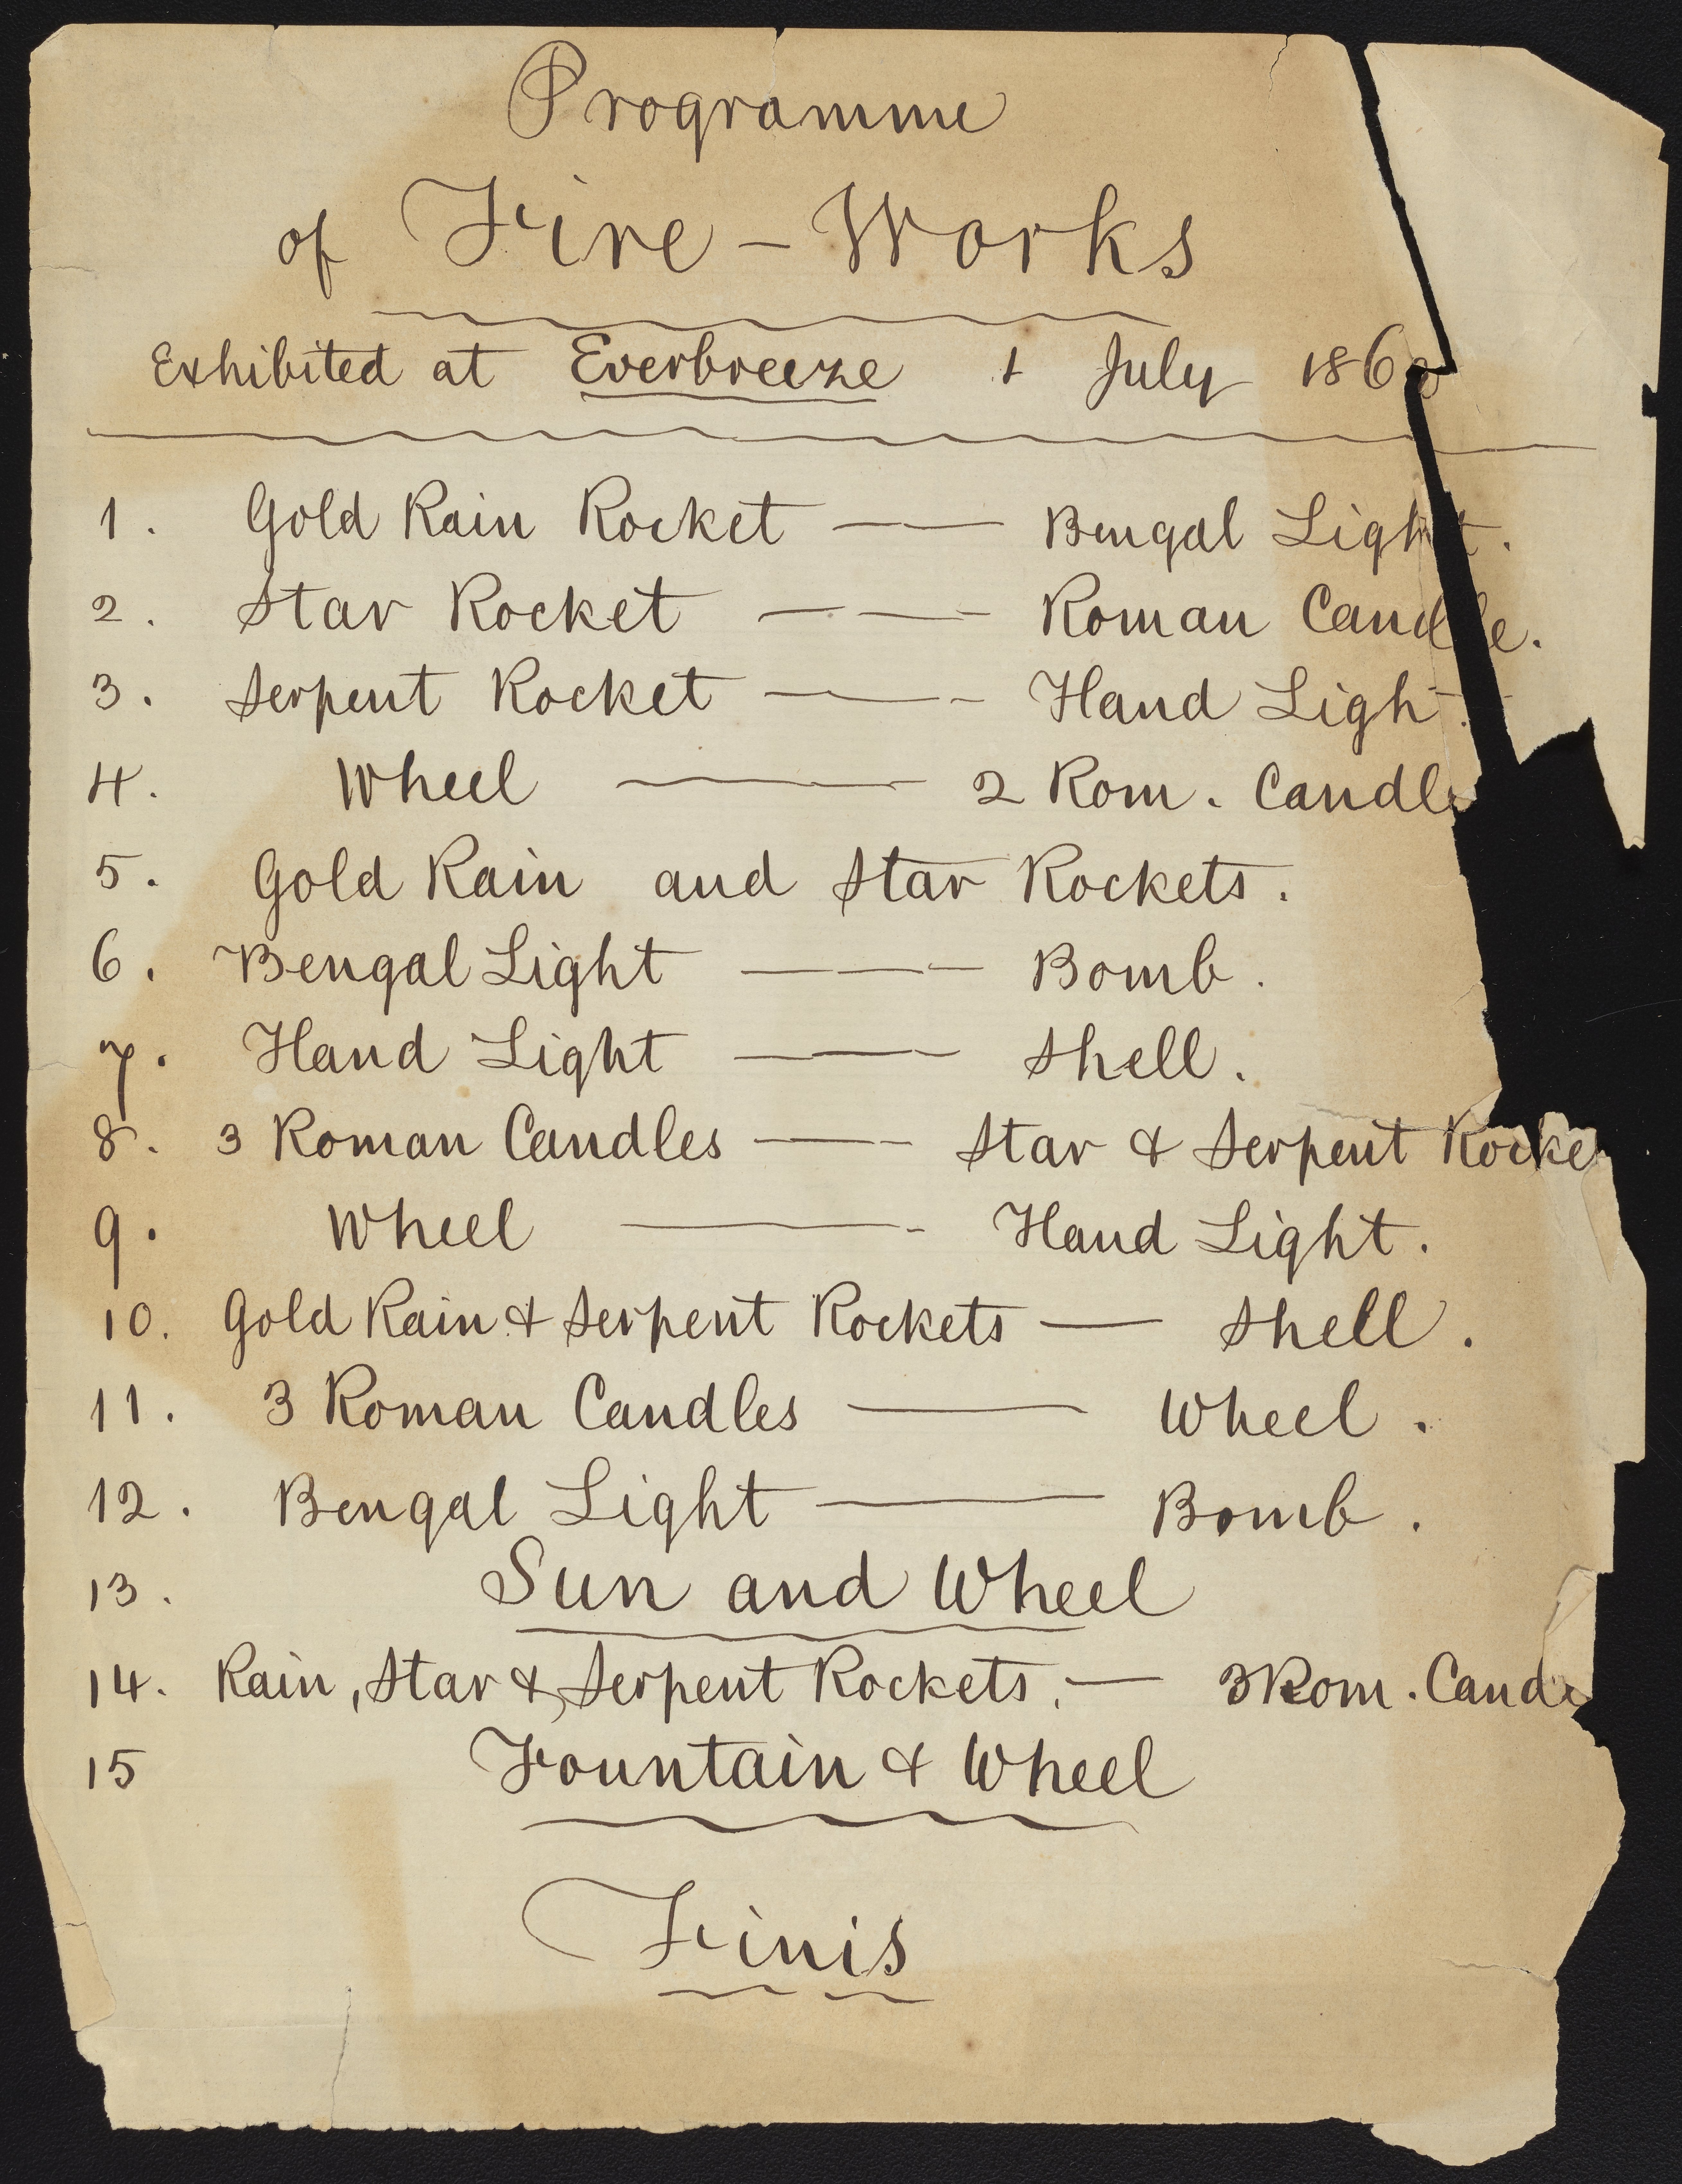 Programme
of Fire-Works
Exhibited at Everbreeze 1 July 186
1. Gold Rain Rocket — — Bengal Light.
2. Star Rocket — — - Roman Candle.
3. Serpent Rocket — — - Hand Ligh
4. Wheel ——— 2 Rom. Candle
5. Gold Rain and Star Rockets.
6. Bengal Light — — - Bomb.
7. Hand Light — — - Shell.
8. 3 Roman Candles — - Star & Serpent Rocke
9. Wheel ——— - Hand Light.
10. Gold Rain & Serpent Rockets — Shell.
11. 3 Roman Candles ——— Wheel.
12. Bengal Light ——— Bomb.
13. Sun and Wheel
14. Rain, Star & Serpent Rockets. — 3 Rom. Cand
15 Fountain & Wheel
Finis